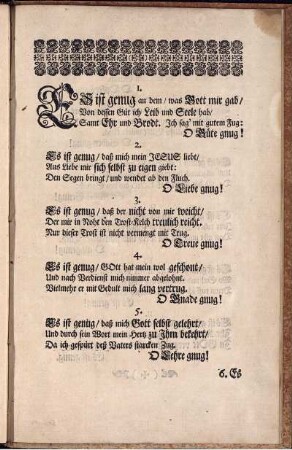 1.
ES ist genug an dem / was Gott mir gab /
Von dessen Güt ich Leib und Seele hab /
Samt Ehr und Brodt. Ich sag' mit gutem Fug:
O Güte gnug!
2.
Es ist genug / daß mich mein JESUS liebt /
Aus Liebe mir sich selbst zu eigen giebt:
Den Segen bringt / und wendet ab den Fluch.
O Liebe gnug!
3.
Es ist genug / daß der nicht von mir weicht /
Der mir in Noht den Trost-Kelch treulich reicht.
Nur dieser Trost ist nicht vermengt mit Trug.
O Treue gnug!
4.
Es ist genug / GOtt hat mein wol geschont /
Und nach Verdienst mich nimmer abgelohnt.
Vielmehr er mit Gedult mich lang vertrug.
O Gnade gnug!
5.
Es ist genug / daß mich Gott selbst gelehrt /
Und durch sein Wort mein Hertz zu Ihm bekehrt /
Da ich gespürt deß Vaters starcken Zug.
O Lehre gnug!
6. Es